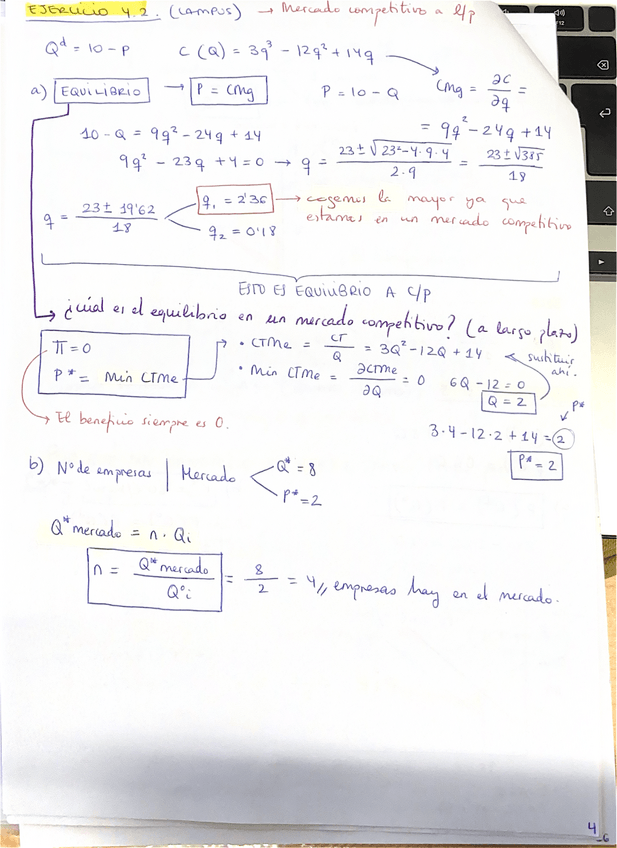 EJERCICIO 4.2. (CAMPUS) → Mercado competitivo a l/p
Q^d = 10 - P C(Q) = 3q³ - 12q² + 14q
a) EQUILIBRIO → P = CMg P = 10 - Q CMg = ∂C/∂q =
= 9q² - 24q + 14
10 - Q = 9q² - 24q + 14
9q² - 23q + 4 = 0 → q = (23 ± √(23² - 4·9·4))/(2·9) = (23 ± √385)/18
q = (23 ± 19'62)/18
q₁ = 2'36 → cogemos la mayor ya que
estamos en un mercado competitivo
q₂ = 0'18
ESTO ES EQUILIBRIO A C/P
¿cuál es el equilibrio en un mercado competitivo? (a largo plazo)
Π = 0
P* = Min CTMe
• CTMe = CT/Q = 3Q² - 12Q + 14 sustituir ahí.
• Min CTMe = ∂CTMe/∂Q = 0 6Q - 12 = 0
Q = 2
→ El beneficio siempre es 0.
P*
3·4 - 12·2 + 14 = 2
P* = 2
b) Nº de empresas | Mercado
Q* = 8
P* = 2
Q* mercado = n · Qi
n = Q* mercado/Q°i = 8/2 = 4// empresas hay en el mercado.
4
6